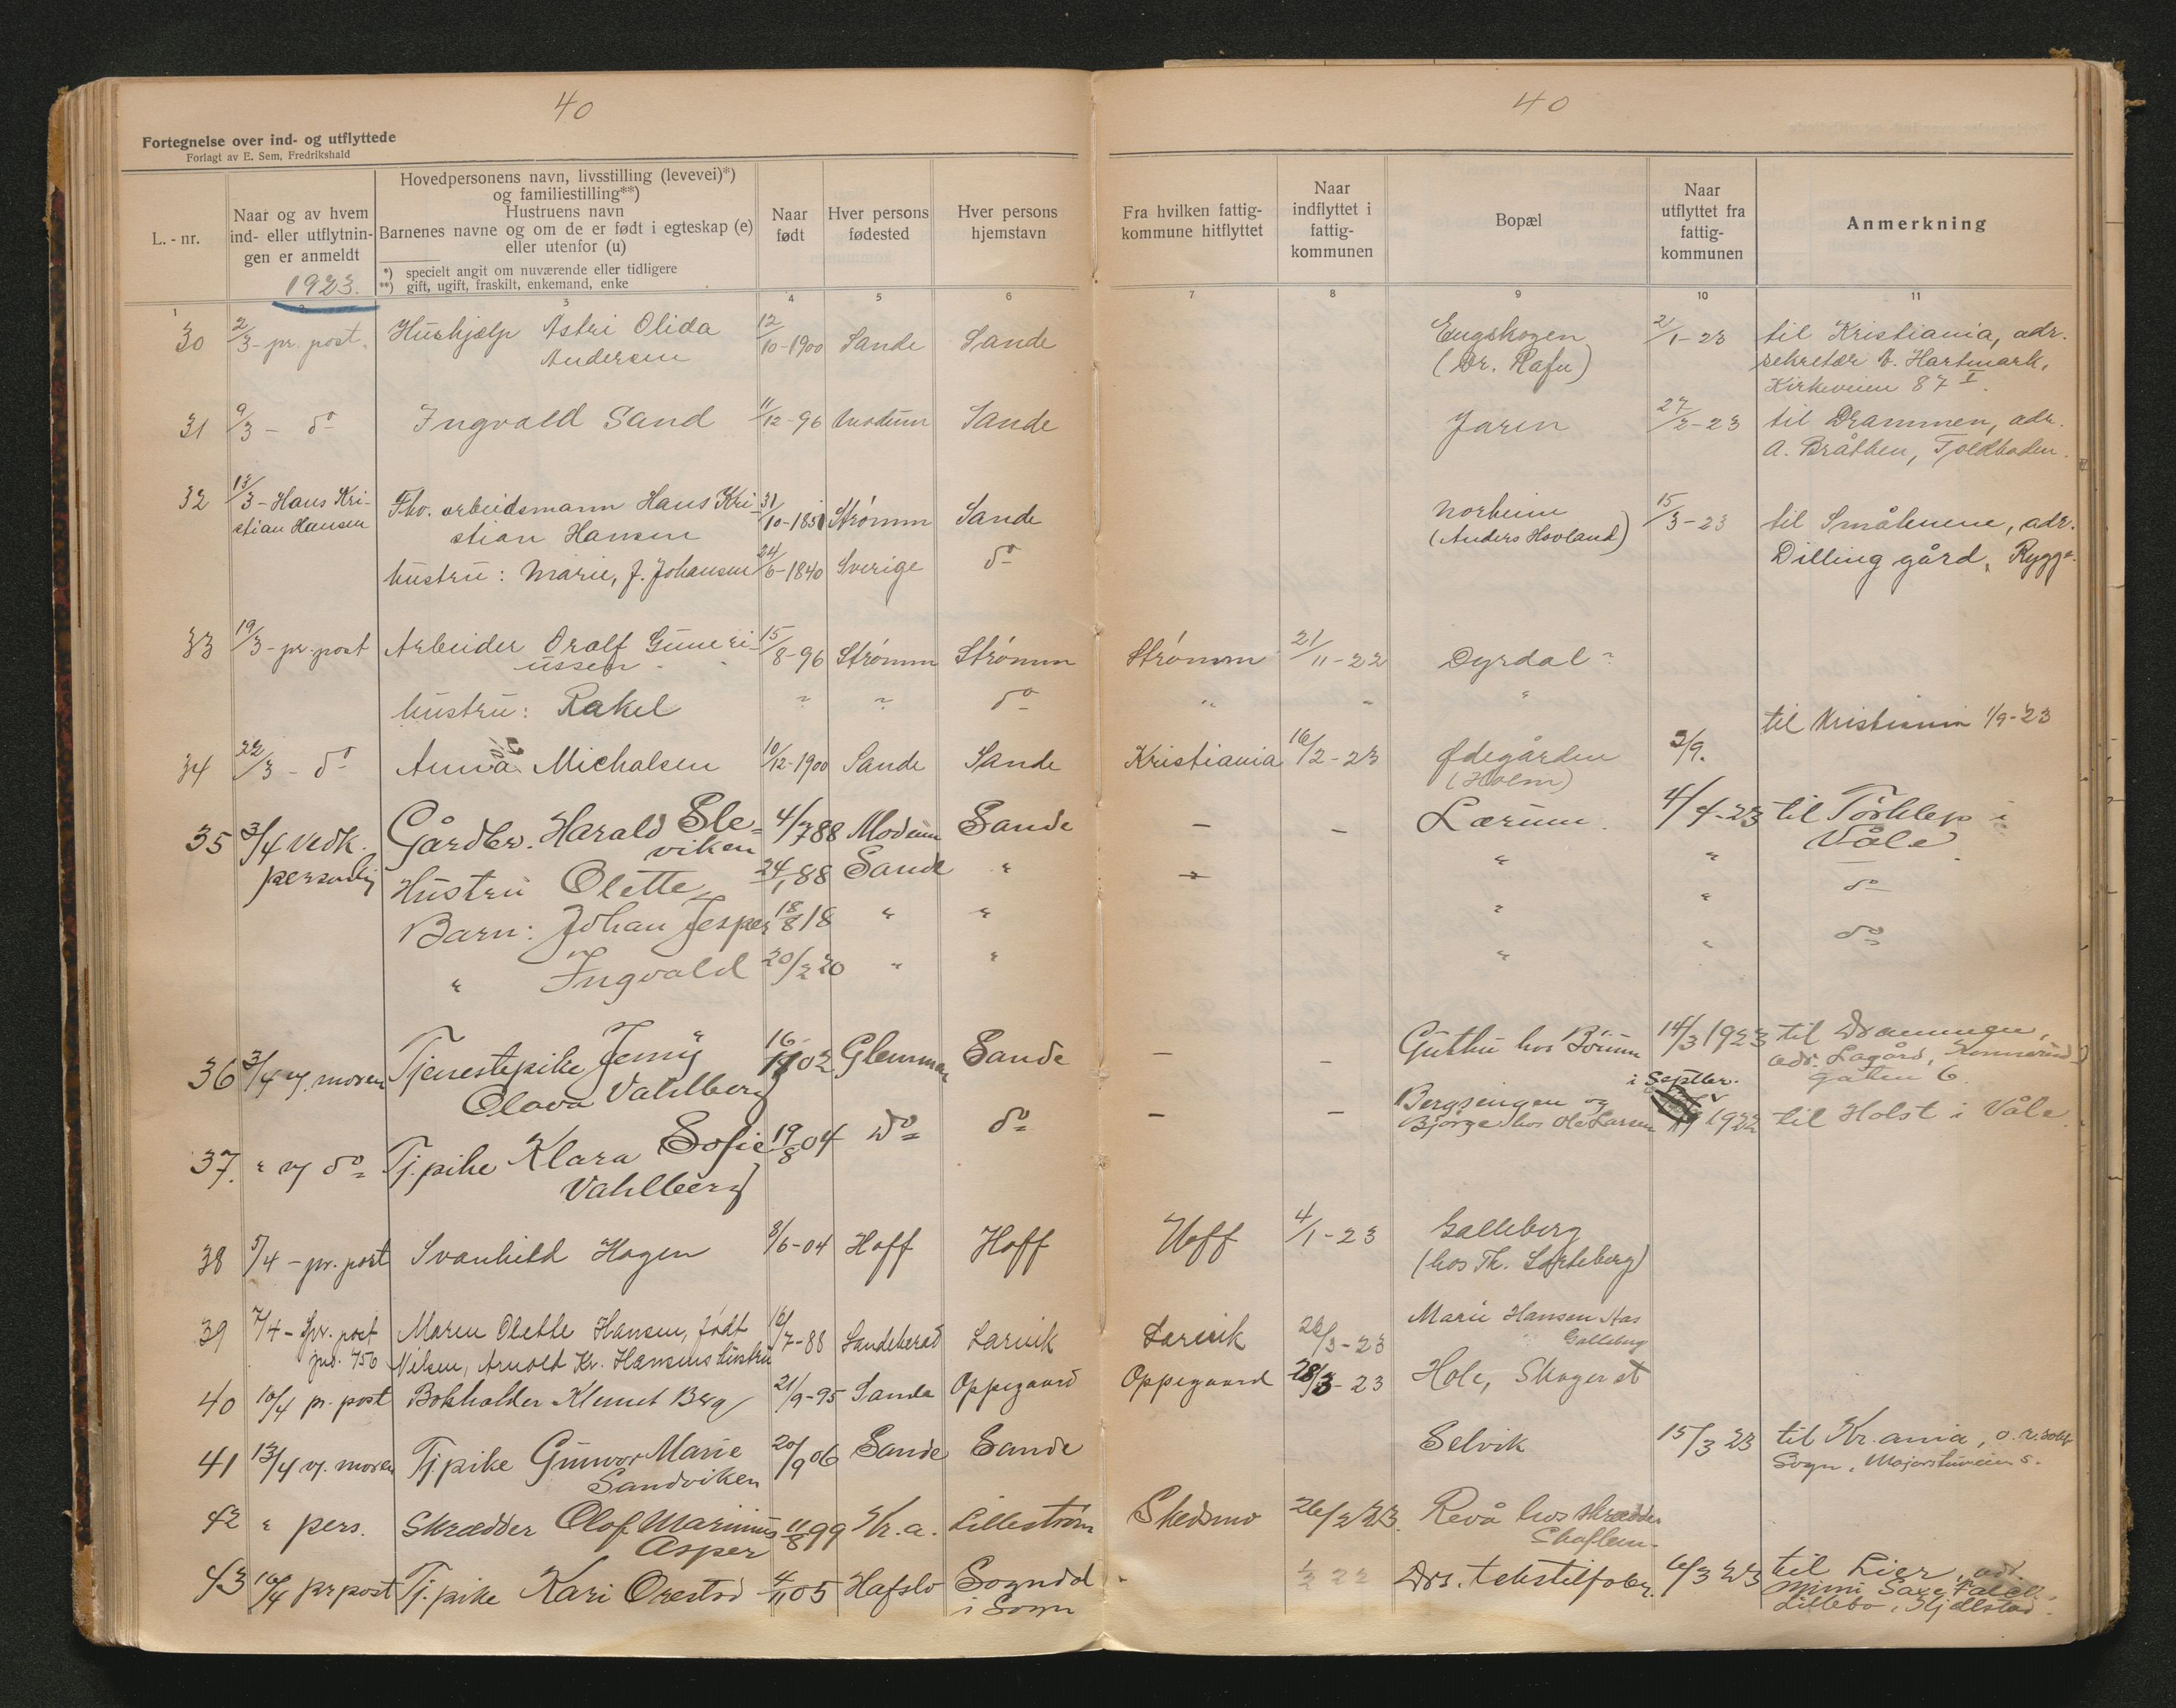 40
40
Fortegnelse over ind- og utflyttede
Forlagt av E. Sem, Fredrikshald
L. - nr.
Naar og av hvem
ind- eller utflytnin-
gen er anmeldt
1923.
Hovedpersonens navn, livsstilling (levevei)*)
og familiestilling**)
Hustruens navn
Barnenes navne og om de er født i egteskap (e)
eller utenfor (u)
*) specielt angit om nuværende eller tidligere
**) gift, ugift, fraskilt, enkemand, enke
Naar
født
Hver persons
fødested
Hver persons
hjemstavn
Fra hvilken fattig-
kommune hitflyttet
Naar
indflyttet i
fattig-
kommunen
Bopæl
Naar
utflyttet fra
fattig-
kommunen
Anmerkning
1 2 3 4 5 6 7 8 9 10 11
30 2/3 - pr. post. Hushjælp Astri Olida 12/10-1900 Sande Sande Engskogen 2/1-23 til Kristiania, adr.
Andersen (Dr. Rafn) sekretær V. Hartmark,
Kirkeveien 87 I.
31 9/3 - do Ingvald Sand 11/12-96 Modum Sande Jaren 27/2-23 til Drammen, adr.
A. Bråthen, Toldboden.
32 13/3 - Hans Kri- Fhv. arbeidsmann Hans Kri- 31/10-1851 Strömm Sande Norheim 15/3-23 til Småhuene, adr.
stian Hansen stian Hansen (Anders Hovland) Dilling gård, Rygge.
hustru: Marie, f. Johansen 24/6-1840 Sverige do
33 19/3 - pr. post Arbeider Oralf Guneri- 15/8-96 Strömm Strömm Strömm 21/11-22 Dyrdal
ussen
hustru: Rakel " " do " " "
til Kristiania 1/9-23
34 22/3 - do Anna Michalsen 10/12-1900 Sande Sande Kristiania 16/2-23 Ødegården 3/9.
(Holm)
35 3/4 vedk. Gårdbr. Harald Sle- 4/7 88 Modum Sande - - Lærum 4/4-23 til Torklep i
personlig viken Våle
Hustru Olette 24/1 88 Sande " - " " do
Barn: Johan Jesper 18/8 18 " " " " do
" Ingvald 20/2 20 " " " "
36 3/4 v. moren Tjenestepike Jenny 16/11 02 Glemmen Sande - - Guthu hos Börum 14/3 1923 til Drammen,
Olava Vahlberg adr. Lagård, Konnerud
gaten 6.
i Septbr.
37. " v do Tj. pike Klara Sofie 19/8 04 do do - - Bergsengen og 1922 til Holst i Våle
Vahlberg Bjørge hos Ole Larsen
38 5/4 - pr. post Svanhild Hagen 8/6-04 Hoff Hoff Hoff 4/1-23 Galleberg
(hos Th. Sorteberg)
39 7/4 - pr. post Maren Olette Hansen, født 16/7-88 Sandeherad Larvik Larvik 26/3-23 Marie Hansen Aas
jnr. 756 Nilsen, Arnold Kr. Hansens hustru Galleberg
40 10/4 pr. post Bokholder Klemet Berg 21/9-95 Sande Oppegaard Oppegaard 28/3-23 Hole, Skoger st
41 13/4 v. moren Tj. pike Gunvor Marie 20/9 06 Sande Sande Selvik 15/3 23 til Kr.ania,
Sandviken Sogn, Majorstuveien 5.
42 " pers. Skrædder Olof Marinius 11/8 99 Kr.a. Lilleström Skedsmo 26/2 23. Revå hos skrædder
Asper
43 16/4 pr post Tj. pike Kari Orestad 4/11 05 Hafslo Sogndal - 1/2 22 Drs. tekstilfabr. 6/3 23 til Lier, adr.
i Sogn Mimi
Lillebo,